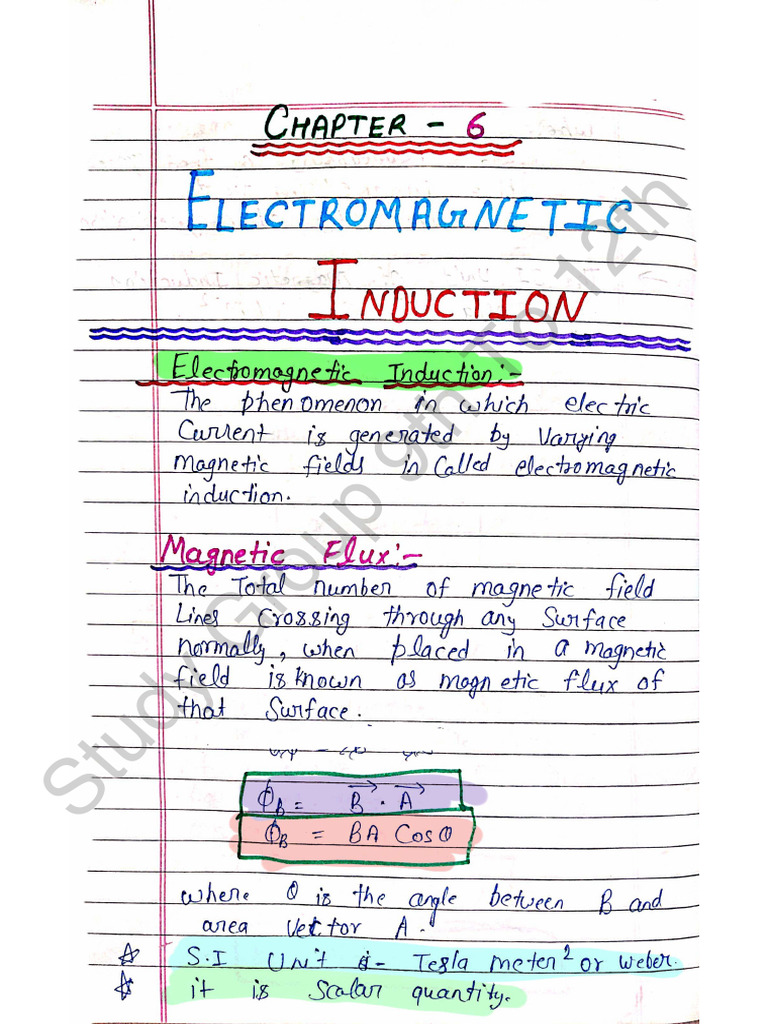 CHAPTER - 6
ELECTROMAGNETIC
INDUCTION
Electromagnetic Induction:-
The phenomenon in which electric
Current is generated by Varying
magnetic fields in Called electromagnetic
induction.
Magnetic Flux:-
The Total number of magnetic field
Lines Crossing through any Surface
normally, when placed in a magnetic
field is known as magnetic flux of
that Surface.
ϕB = B⃗ . A⃗
ϕB = BA Cosθ
where θ is the angle between B and
area Vector A.
☆ S.I Unit :- Tesla meter² or weber.
☆ it is Scalar quantity.
Study Group 9th To 12th